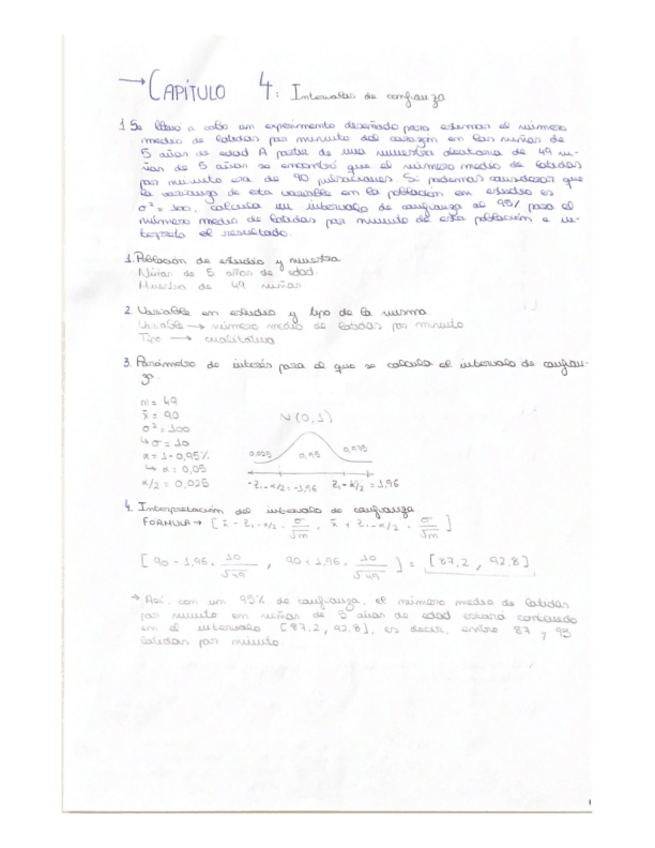 → CAPÍTULO 4: Intervalos de confianza
1 Se llevo a cabo un experimento diseñado para estimar el número
medio de latidos por minuto del corazón en los niños de
5 años de edad A partir de una muestra aleatoria de 49 ni-
ños de 5 años se encontró que el número medio de latidos
por minuto era de 90 pulsaciones. Si podemos considerar que
la varianza de esta variable en la población en estudio es
σ² = 100, calcula un intervalo de confianza al 95% para el
número medio de latidos por minuto de esta población e in-
terpreta el resultado.
1. Población de estudio y muestra
Niños de 5 años de edad.
Muestra de 49 niños.
2. Variable en estudio y tipo de la misma
Variable → número medio de latidos por minuto
Tipo → cuantitativa
3. Parámetro de interés para el que se calcula el intervalo de confian-
za.
n = 49
x̄ = 90
σ² = 100
↳ σ = 10
α = 1 - 0,95%
↳ α = 0,05
α/2 = 0,025
N (0,1)
0,025 0,95
-Z₁-α/2 = -1,96 Z₁-α/2 = 1,96
4. Interpretación del intervalo de confianza
FORMULA → [ x̄ - Z₁-α/2 · σ/√n , x̄ + Z₁-α/2 · σ/√n ]
[ 90 - 1,96 · 10/√49 , 90 + 1,96 · 10/√49 ] = [87,2 , 92,8]
→ Así, con un 95% de confianza, el número medio de latidos
por minuto en niños de 5 años de edad estará contenido
en el intervalo [87,2 , 92,8], es decir, entre 87 y 93
latidos por minuto.